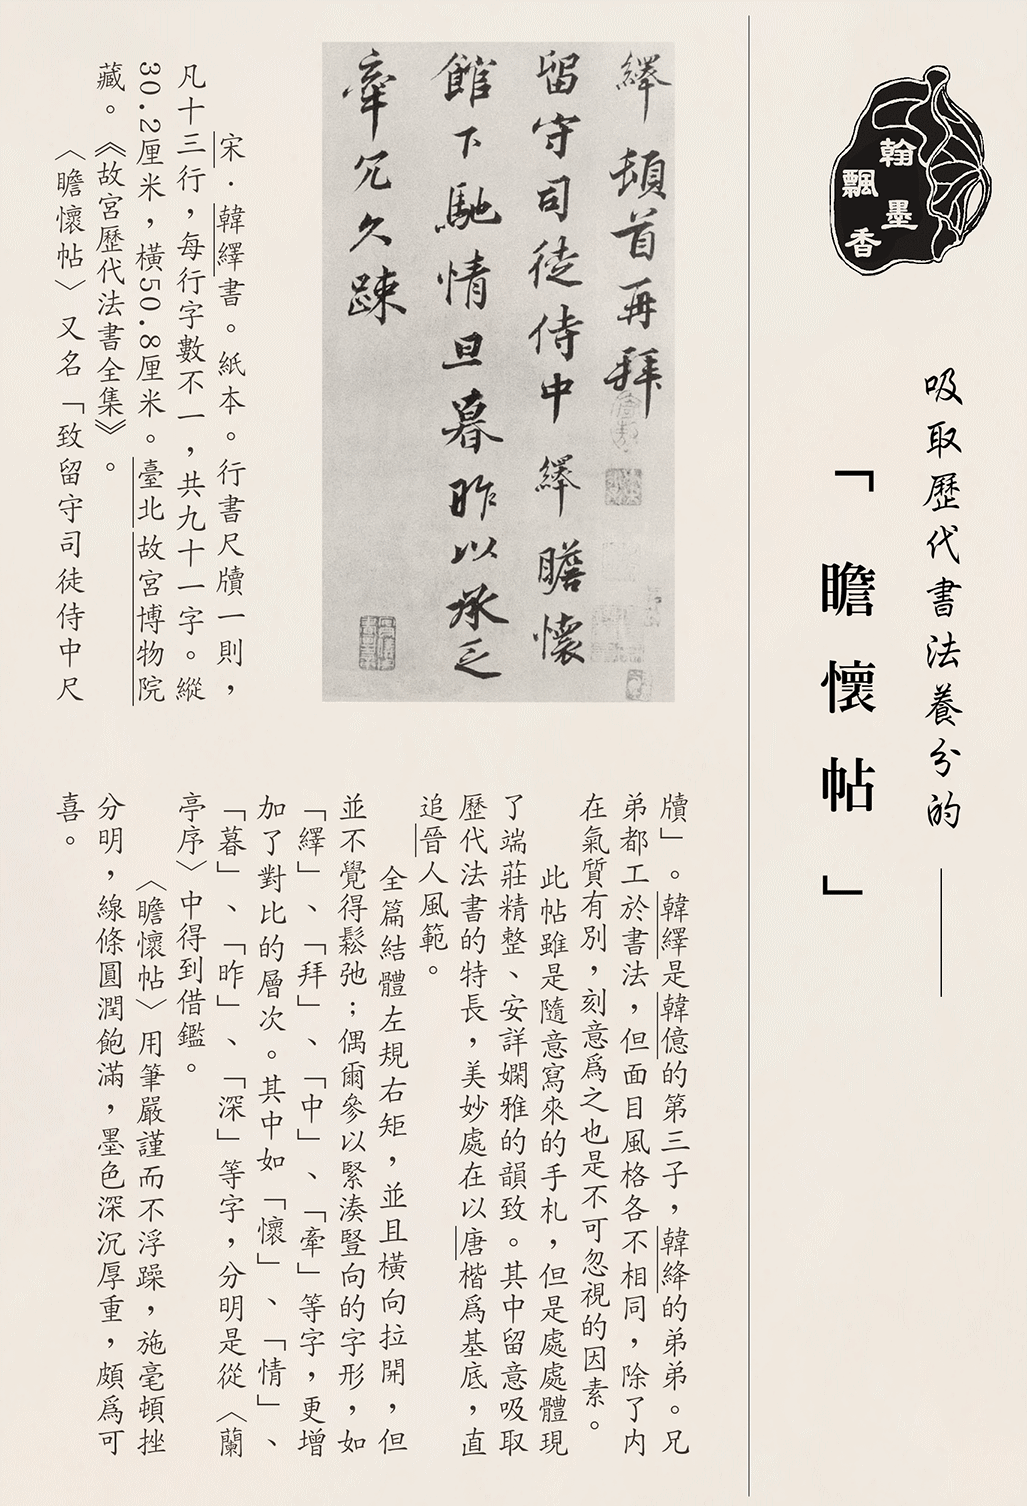 翰墨
飄香
吸取歷代書法養分的——
「瞻懷帖」
繹頓首再拜
留守司徒侍中繹瞻懷
館下馳情旦暮昨以承乏
牽冗久踈
宋．韓繹書。紙本。行書尺牘一則，
凡十三行，每行字數不一，共九十一字。縱
30.2厘米，橫50.8厘米。臺北故宮博物院
藏。《故宮歷代法書全集》。
〈瞻懷帖〉又名「致留守司徒侍中尺
牘」。韓繹是韓億的第三子，韓絳的弟弟。兄
弟都工於書法，但面目風格各不相同，除了內
在氣質有別，刻意爲之也是不可忽視的因素。
此帖雖是隨意寫來的手札，但是處處體現
了端莊精整、安詳嫻雅的韻致。其中留意吸取
歷代法書的特長，美妙處在以唐楷爲基底，直
追晉人風範。
全篇結體左規右矩，並且橫向拉開，但
並不覺得鬆弛；偶爾參以緊湊豎向的字形，如
「繹」、「拜」、「中」、「牽」等字，更增
加了對比的層次。其中如「懷」、「情」、
「暮」、「昨」、「深」等字，分明是從〈蘭
亭序〉中得到借鑑。
〈瞻懷帖〉用筆嚴謹而不浮躁，施毫頓挫
分明，線條圓潤飽滿，墨色深沉厚重，頗爲可
喜。